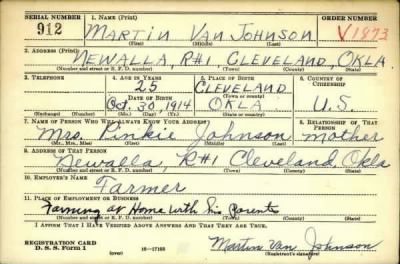 SERIAL NUMBER 1. NAME (Print) ORDER NUMBER
912 MARTIN VAN JOHNSON V1873
(First) (Middle) (Last)
2. ADDRESS (Print)
NEWALLA, R#1, CLEVELAND, OKLA.
(Number and street or R. F. D. number) (Town) (County) (State)
3. TELEPHONE 4. AGE IN YEARS 5. PLACE OF BIRTH 6. COUNTRY OF CITIZENSHIP
25 CLEVELAND
DATE OF BIRTH (Town or county)
Oct. 30, 1914 OKLA U.S.
(Exchange) (Number) (Mo.) (Day) (Yr.) (State or country)
7. NAME OF PERSON WHO WILL ALWAYS KNOW YOUR ADDRESS 8. RELATIONSHIP OF THAT PERSON
Mrs. Pinkie Johnson mother
(Mr., Mrs., Miss) (First) (Middle) (Last)
9. ADDRESS OF THAT PERSON
Newalla, R#1 Cleveland, Okla
(Number and street or R. F. D. number) (Town) (County) (State)
10. EMPLOYER'S NAME
Farmer
11. PLACE OF EMPLOYMENT OR BUSINESS
Farming at Home with his parents
(Number and street or R. F. D. number) (Town) (County) (State)
I AFFIRM THAT I HAVE VERIFIED ABOVE ANSWERS AND THAT THEY ARE TRUE.
REGISTRATION CARD
D. S. S. Form 1 16—17105 Martin Van Johnson
(Registrant's signature)